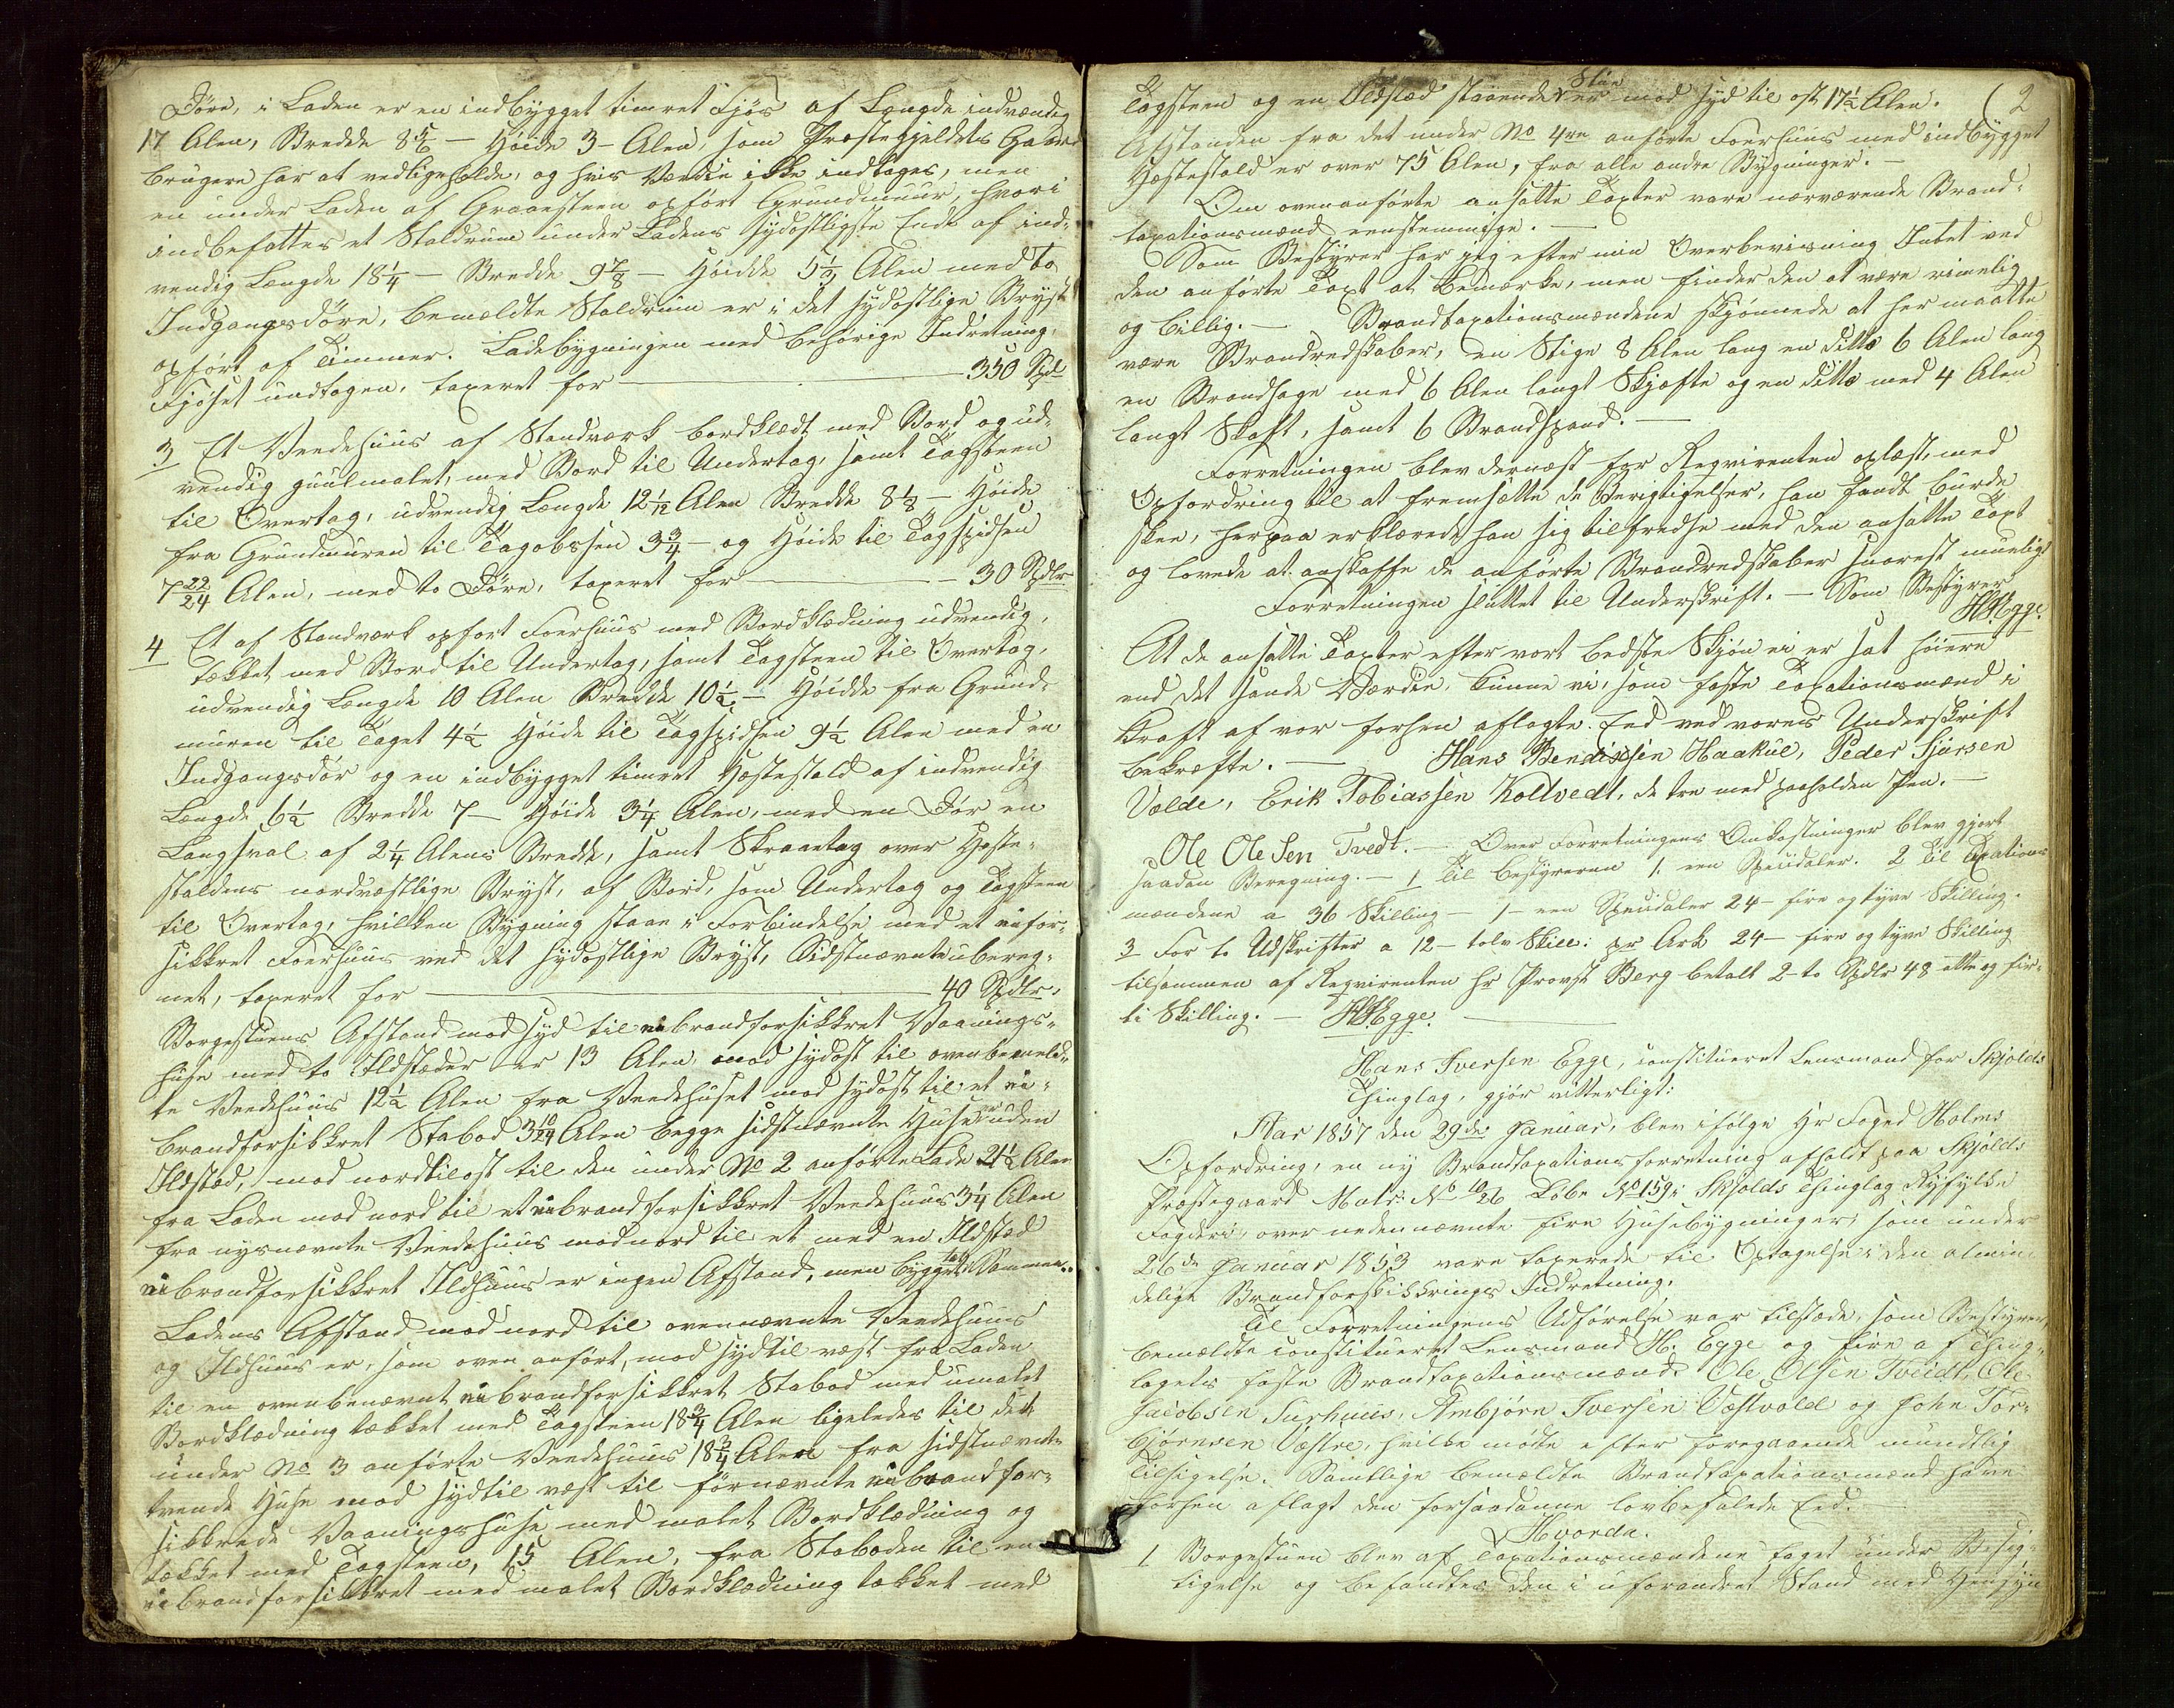 Döre, i Laden er en indbygget timret Fjøs af Længde indvendig
17 Alen, Bredde 8 5/6 — Höide 3 – Alen, som Præstegjeldets Gaard-
brugere har at vedligeholde, og hvis Værdie ikke indtages, men
en under Laden af Graaesteen opfört Grundmuur, hvori
indbefattes et Staldrum under Ladens sydostligste Ende af ind-
vendig Længde 18 1/4 — Bredde 9 7/8 — Höidde 5 1/3 Alen med to
Indgangsdöre, bemeldte Staldrum er i det sydostlige Bryst
opfört af Timmer. Ladebygningen med behörige Indretning,
Fjöset undtagen, taxeret for — 350 Spd
3 Et Veedehuus af Standværk bordklædt med Bord og ud-
vendig guulmalet, med Bord til Undertag, samt Tagsteen
til Overtag, udvendig Længde 12 1/12 Alen Bredde 8 1/8 — Höide
fra Grundmuren til Tagobssen 3 3/4 — og Höide til Tagspidsen
7 22/24 Alen, med to Döre, taxeret for — 30 Spdlr
4 Et af Standværk opfört Foerhuus med Bordklædning udvendig,
tækket med Bord til Undertag, samt Tagsteen til Overtag,
udvendig Længde 10 Alen Bredde 10 1/2 — Höidde fra Grund-
muren til Taget 4 1/2 Höide til Tagspidsen 9 1/2 Alen med en
Indgangsdör og en indbygget timret Hestestald af indvendig
Længde 6 1/2 Bredde 7 — Höide 3 1/4 Alen, med en Dör en
Langsval af 2 1/4 Alens Bredde, samt Skraatag over Heste-
staldens nordvestlige Bryst, af Bord, som Undertag og Tagsteen
til Overtag, hvilken Bygning staar i Forbindelse med et uafor-
sikkret Foerhuus ved det sydostlige Bryst, Sidstnævnte ubereg-
net, taxeret for — 40 Spdlr.
Borgestuens Afstand mod syd til ubrandforsikkret Vaanings-
huse med to Ildstæder er 13 Alen mod sydost til ovenbemeld-
te Veedehuus 12 1/2 Alen fra Veedehuset mod sydost til et u-
brandforsikkret Stabod 3 10/24 Alen begge sidstnævnte Huse er uden
Ildsted, mod nordtilost til den under No 2 anförte Lade 21 1/2 Alen
fra Laden mod nord til et ubrandforsikkret Veedehuus 3 1/4 Alen
fra nysnævnte Veedehuus mod nord til et med en Ildsted
ubrandforsikkret Ildhuus er ingen Afstand, men bygget Sammen.
Ladens Afstand mod nord til ovennævnte Veedehuus
og Ildhuus er, som oven anfört, mod sydtil vest fra Laden
til en ovenbenævnt ubrandforsikkret Stabod med umalet
Bordklædning tækket med Tagsteen 18 3/4 Alen ligeledes til det
under No 3 anförte Veedehuus 18 3/4 Alen fra sidstnævnte
tvende Huse mod sydtil vest til förnævnte ubrandfor-
sikkrede Vaaningshuse med malet Bordklædning og
tækket med Tagsteen, 15 Alen, fra Staboden til en
ubrandforsikkret med malet Bordklædning tækket med
Tagsteen og en Ildsted staaende Stue er mod syd til ost 17 1/2 Alen. (2
Afstanden fra det under No 4re anförte Foerhuus med indbygget
Hestestald er over 75 Alen, fra alle andre Bygninger. —
Om ovenanförte ansatte Taxter vare nærværende Brand-
taxationsmænd eenstemmige. —
Som Bestyrer har jeg efter min Overbeviisning Intet ved
den anförte Taxt at bemærke, men finder den at være rimelig
og billig. — Brandtaxationsmændene skjönnede at her maatte
være Brandredskaber, en Stige 8 Alen lang en ditto 6 Alen lang
en Brandhage med 6 Alen langt Skjæfte og en ditto med 4 Alen
langt Skaft, samt 6 Brandspand. —
Forretningen blev dernæst for Reqvirenten oplæst, med
Opfordring til at fremsætte de Berigtigelser, han fandt burde
skee, herpaa erklærede han sig tilfreds med den ansatte Taxt
og lovede at anskaffe de anförte Brandredskaber snarest mueligt
Forretningen sluttet til Underskrift. — Som Bestyrer
HHEgge.
At de ansatte Taxter efter vort bedste Skjön ei er sat höiere
end det sande Værdie, kunne vi, som faste Taxationsmænd i
Kraft af vor forhen aflagte Eed ved vores Underskrift
bekræfte. — Hans Bendixsen Haakul, Peder Sjursen
Valde, Erik Tobiassen Koltvedt, de tre med paaholden Pen. —
Ole Olesen Tvedt. — Over Forretningens Omkostninger blev gjort
saadan Beregning. — 1 Til Bestyreren 1. een Speciedaler. 2 Til Taxations-
mændene a 36 Skilling — 1 – een Speciedaler 24 – fire og tyve Skilling.
3 For to Udskrifter a 12 – tolv Skill: pr Ark 24 – fire og tyve Skilling
tilsammen af Reqvirenten hr Provst Berg betalt 2 – to Spdlr 48 otte og för-
ti Skilling. — HHEgge. —
Hans Iversen Egge, constitueret Lensmand for Skjolds
Thinglag, gjör vitterligt:
Aar 1857 den 29de Januar, blev ifölge Hr Foged Holms
Opfordring, en ny Brandtaxationsforretning afholdt paa Skjolds
Præstegaard Matr: No 10/26 Löbe No 159 i Skjolds Thinglag Ryfylke
Fogderi, over nedennævnte fire Husebygninger, som under
26de Januar 1853 vare taxerede til Optagelse i den almin-
delige Brandforsikkrings Indretning.
Til Forretningens Udförelse var tilstede, som Bestyrer,
bemeldte constitueret Lensmand H. Egge og fire af Thing-
lagets faste Brandtaxationsmænd: Ole Olsen Tveidt, Ole
Jacobsen Surhuus, Ambjörn Iversen Væstvold og John Tor-
bjørnsen Væstre, hvilke mödte efter foregaaende mundtlig
Tilsigelse. Samtlige bemeldte Brandtaxationsmænd have
forhen aflagt den forsaadanne lovbefalede Eed.
Hvorda.
1 Borgestuen blev af Taxationsmændene taget under Besig-
tigelse og befandtes den i uforandret Stand med Hensyn